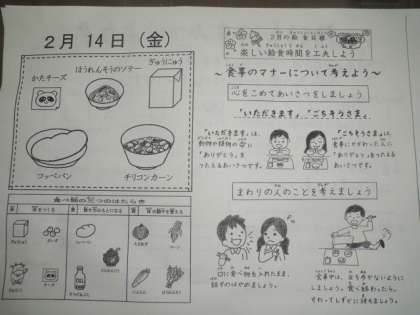 2月14日(金)
ぎゅうにゅう
ほうれんそうのソテー
かたチーズ
コッペパン
チリコンカーン
食べ物の3つのはたらき
2月の給食目標
楽しい給食時間を工夫しよう
～食事のマナーについて考えよう～
心をこめてあいさつをしましょう
"いただきます" "ごちそうさま"
"いただきます"は、
動物や植物の命に
「ありがとう」を
つたえるあいさつです。
"ごちそうさま"は
食事にかかわった人に
「ありがとう」をつたえる
あいさつです。
まわりの人のことを考えましょう
口に食べ物を入れたまま、
話すのはやめましょう。
食事中は、立ち歩かないように
しましょう。食べ終わったら、
すわってしずかに待ちましょう。